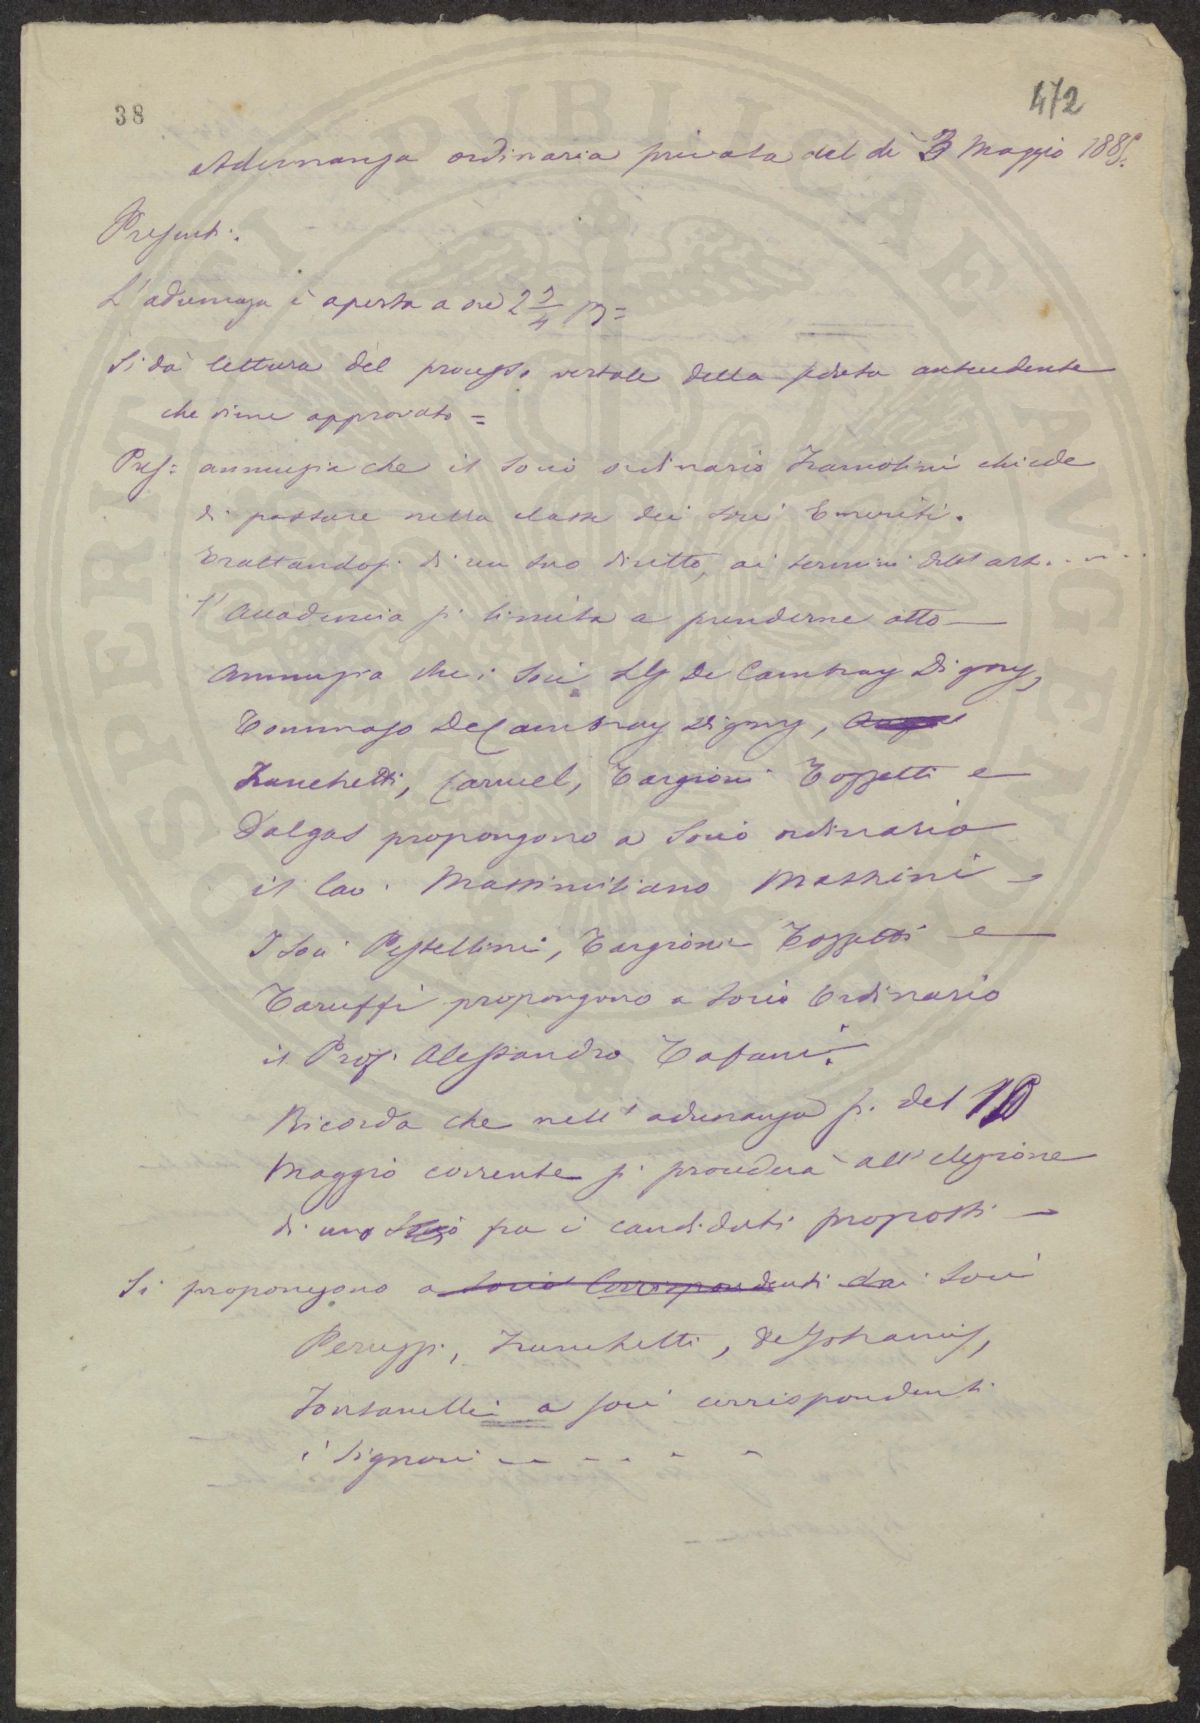 38
472
Adunanza ordinaria privata del dì 3 Maggio 1885.
Presenti.
L'adunanza è aperta a ore 2 3/4 p =
Si dà lettura del processo verbale della seduta antecedente
che viene approvato =
Pres: annunzia che il Socio ordinario chiede
di passare nella classe dei Soci Emeriti.
Trattandosi di un suo diritto, ai termini dell'art. . . .
l'Accademia si limita a prenderne atto
Annunzia che i Soci LG De Cambray Digny,
Tommaso De Cambray Digny,
Franchetti, Caruel, Targioni Tozzetti e
Dalgas propongono a Socio ordinario
il Cav. Massimiliano Massini
I Soci Pestellini, Targioni Tozzetti e
Taruffi propongono a Socio Ordinario
il Prof. Alessandro Tafani.
Ricorda che nell'adunanza p. del 10
Maggio corrente si procederà all'elezione
di uno Socio fra i candidati proposti
Si propongono a Socio Corrispondenti dai Soci
Peruzzi, Franchetti, De Johannis,
Fontanelli a soci corrispondenti
i Signori - - - - - -
OSPERITATI PVBLICAE AVGENDAE